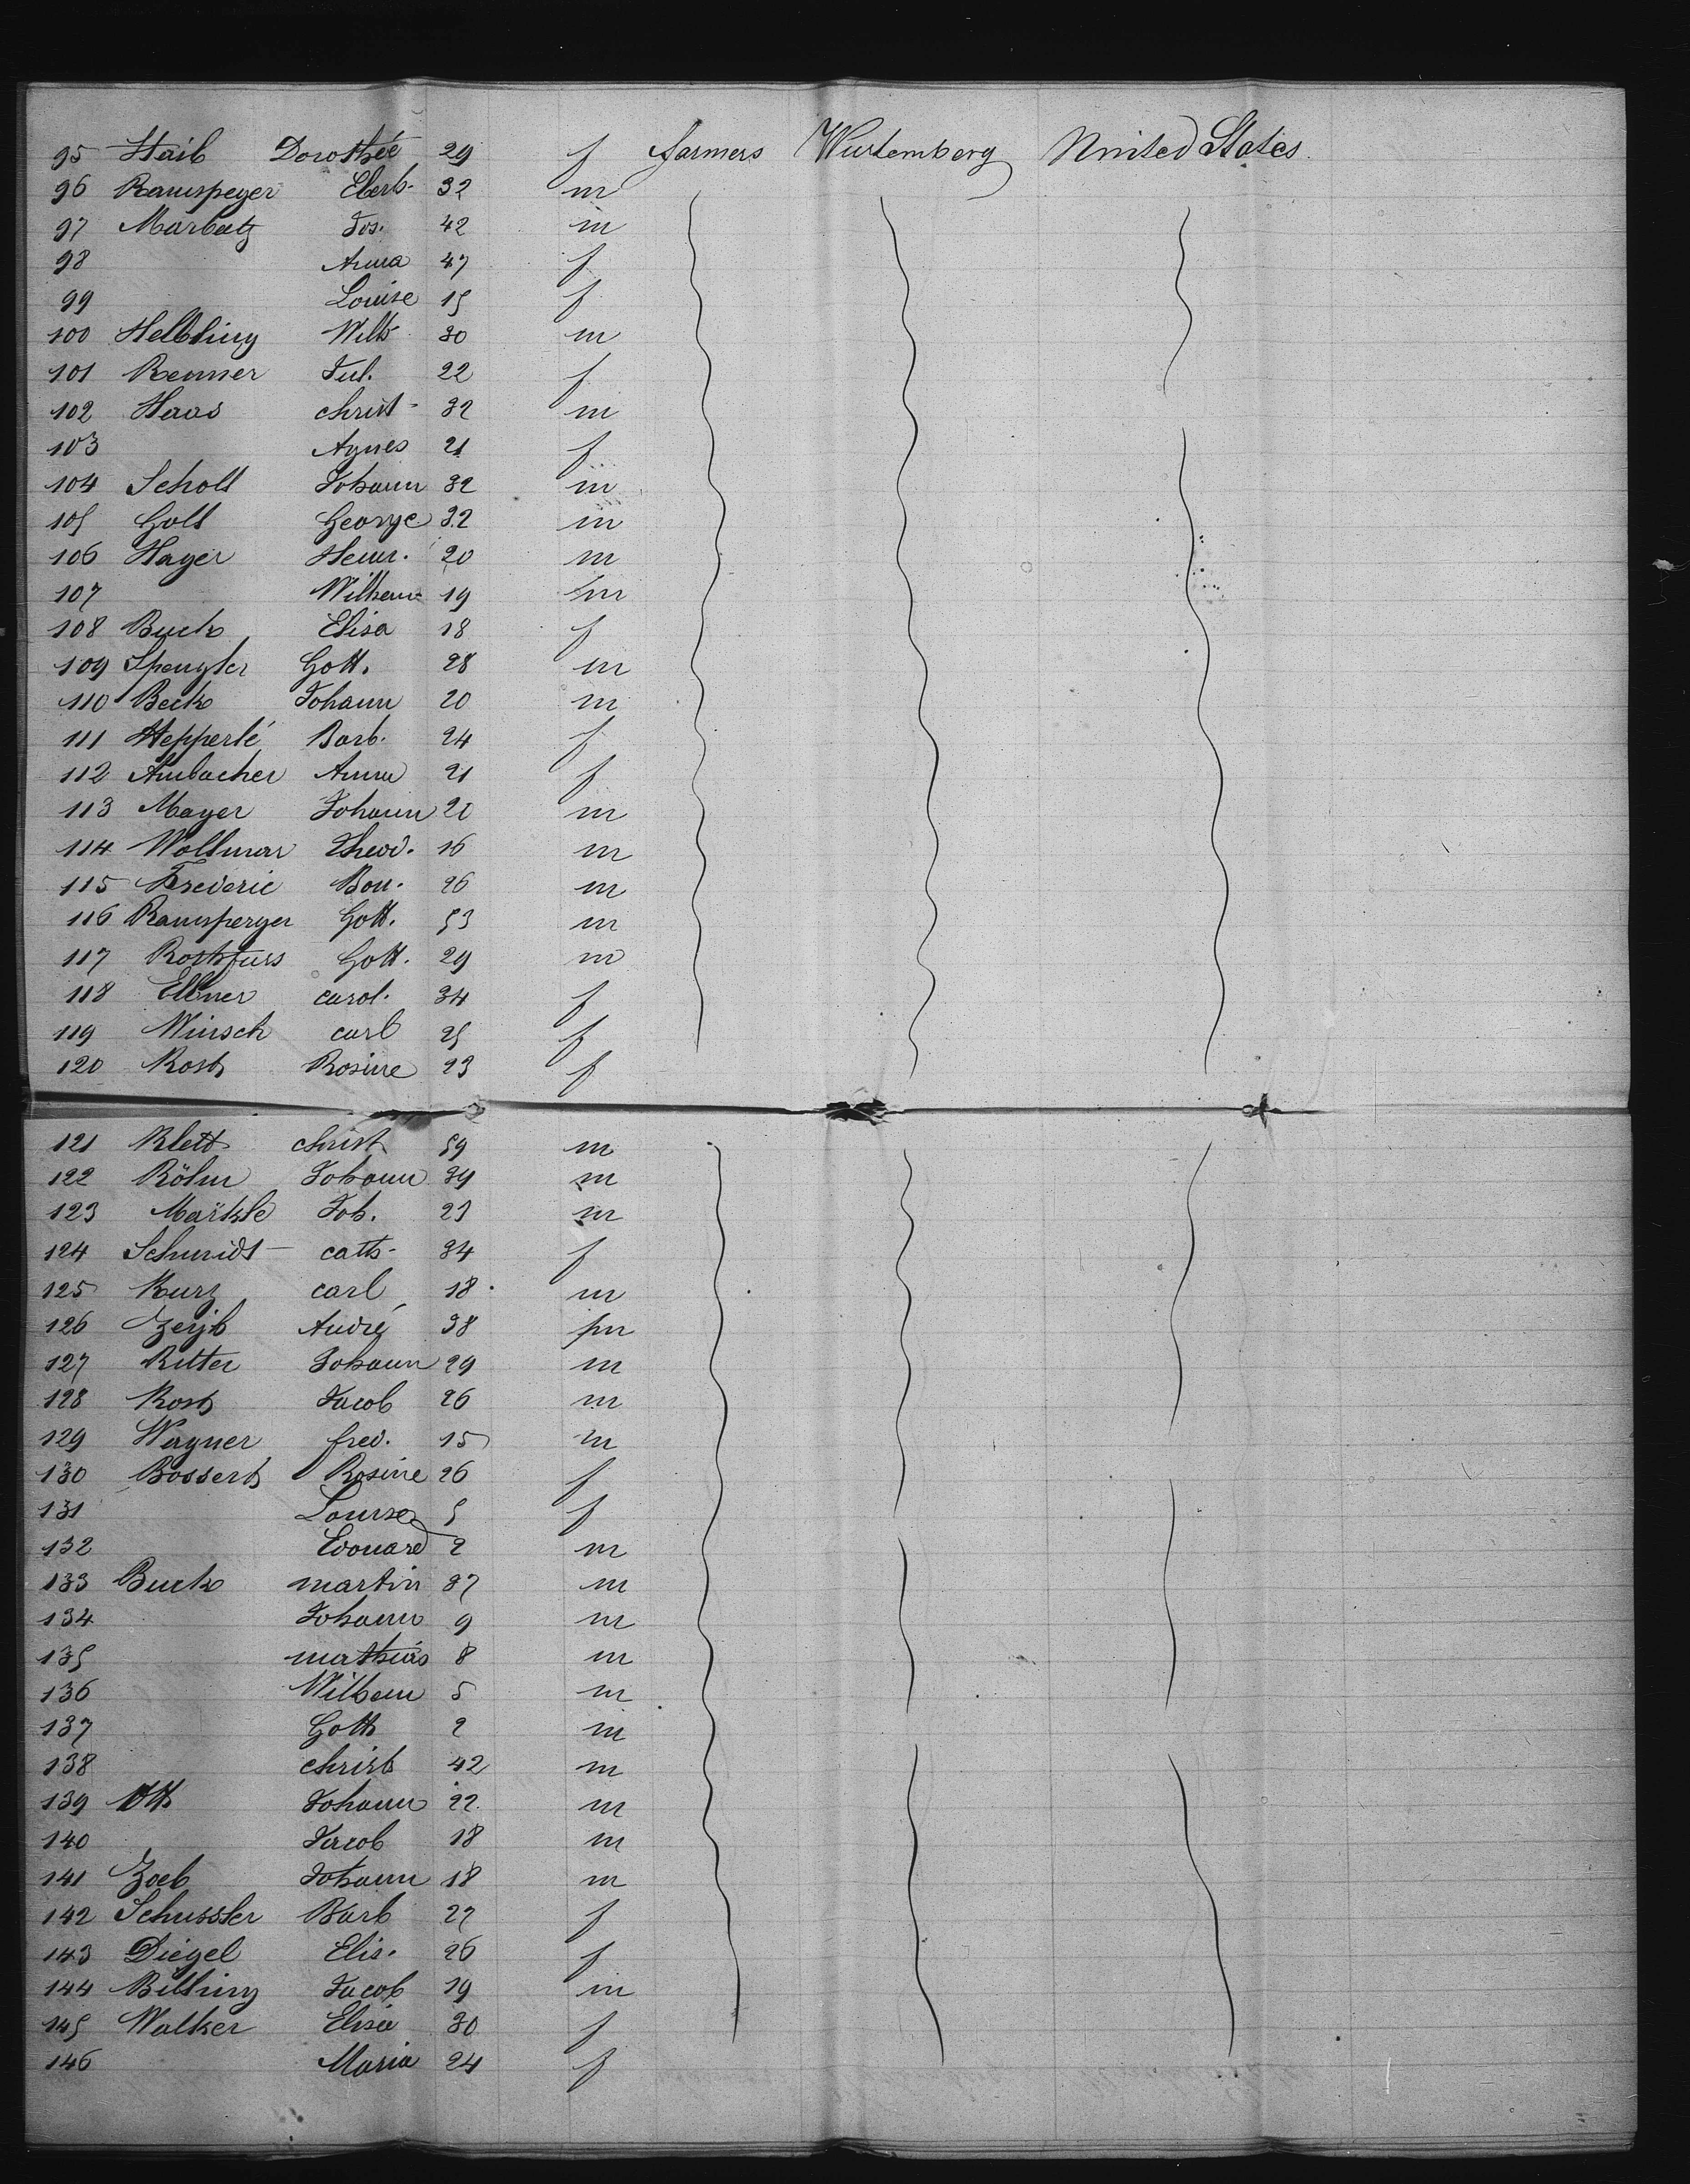 95 Haib Dorothée 29 f farmers Wurtemberg United States.
96 Ramspeyer Eberh. 32 m
97 Marbatz Jos. 42 m
98 Anna 47 f
99 Louise 15 f
100 Helbling Wilh 30 m
101 Renner Jul. 22 f
102 Haas christ- 32 m
103 Agnes 21 f
104 Scholl Johann 32 m
105 Goll George 32 m
106 Hayer Heinr. 20 m
107 Wilhem 19 m
108 Buck Elisa 18 f
109 Spengler Gott. 28 m
110 Beck Johann 20 m
111 Hepperlé Barb. 24 f
112 Ambacher Anna 21 f
113 Mayer Johann 20 m
114 Wollmar Theod. 16 m
115 Frederic Bon. 26 m
116 Ramsperger Gott. 53 m
117 Rothfuss Gott. 29 m
118 Ellner carol. 34 f
119 Winsch carl 25 f
120 Kost Rosine 23 f
121 Klett christ 59 m
122 Röhm Johann 39 m
123 Märkle Joh. 23 m
124 Schmidt cath- 34 f
125 Kurz carl 18. m
126 André 38 m
127 Ritter Johann 29 m
128 Kost Jacob 26 m
129 Wagner fred. 15 m
130 Bossert Rosine 26 f
131 Louise 5 f
132 Edouard 2 m
133 Buck martin 37 m
134 Johann 9 m
135 mathias 8 m
136 Wilhem 5 m
137 Gott 2 m
138 christ 42 m
139 Ott Johann 22. m
140 Jacob 18 m
141 Zoeb Johann 18 m
142 Schussler Barb 27 f
143 Diegel Elis. 26 f
144 Billing Jacob 19 m
145 Walker Elisa 30 f
146 Maria 24 f